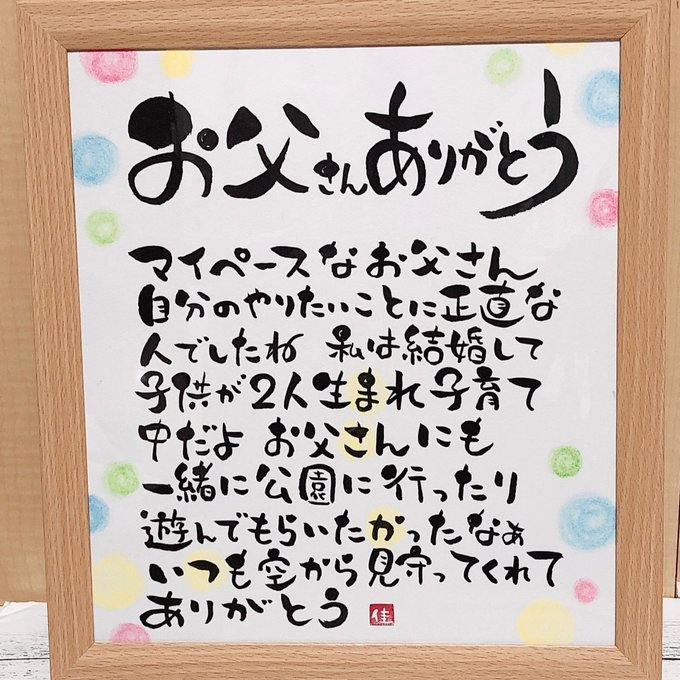 お父さんありがとう
マイペースなお父さん
自分のやりたいことに正直な
人でしたね 私は結婚して
子供が2人生まれ子育て
中だよ お父さんにも
一緒に公園に行ったり
遊んでもらいたかったなぁ
いつも空から見守ってくれて
ありがとう 佳